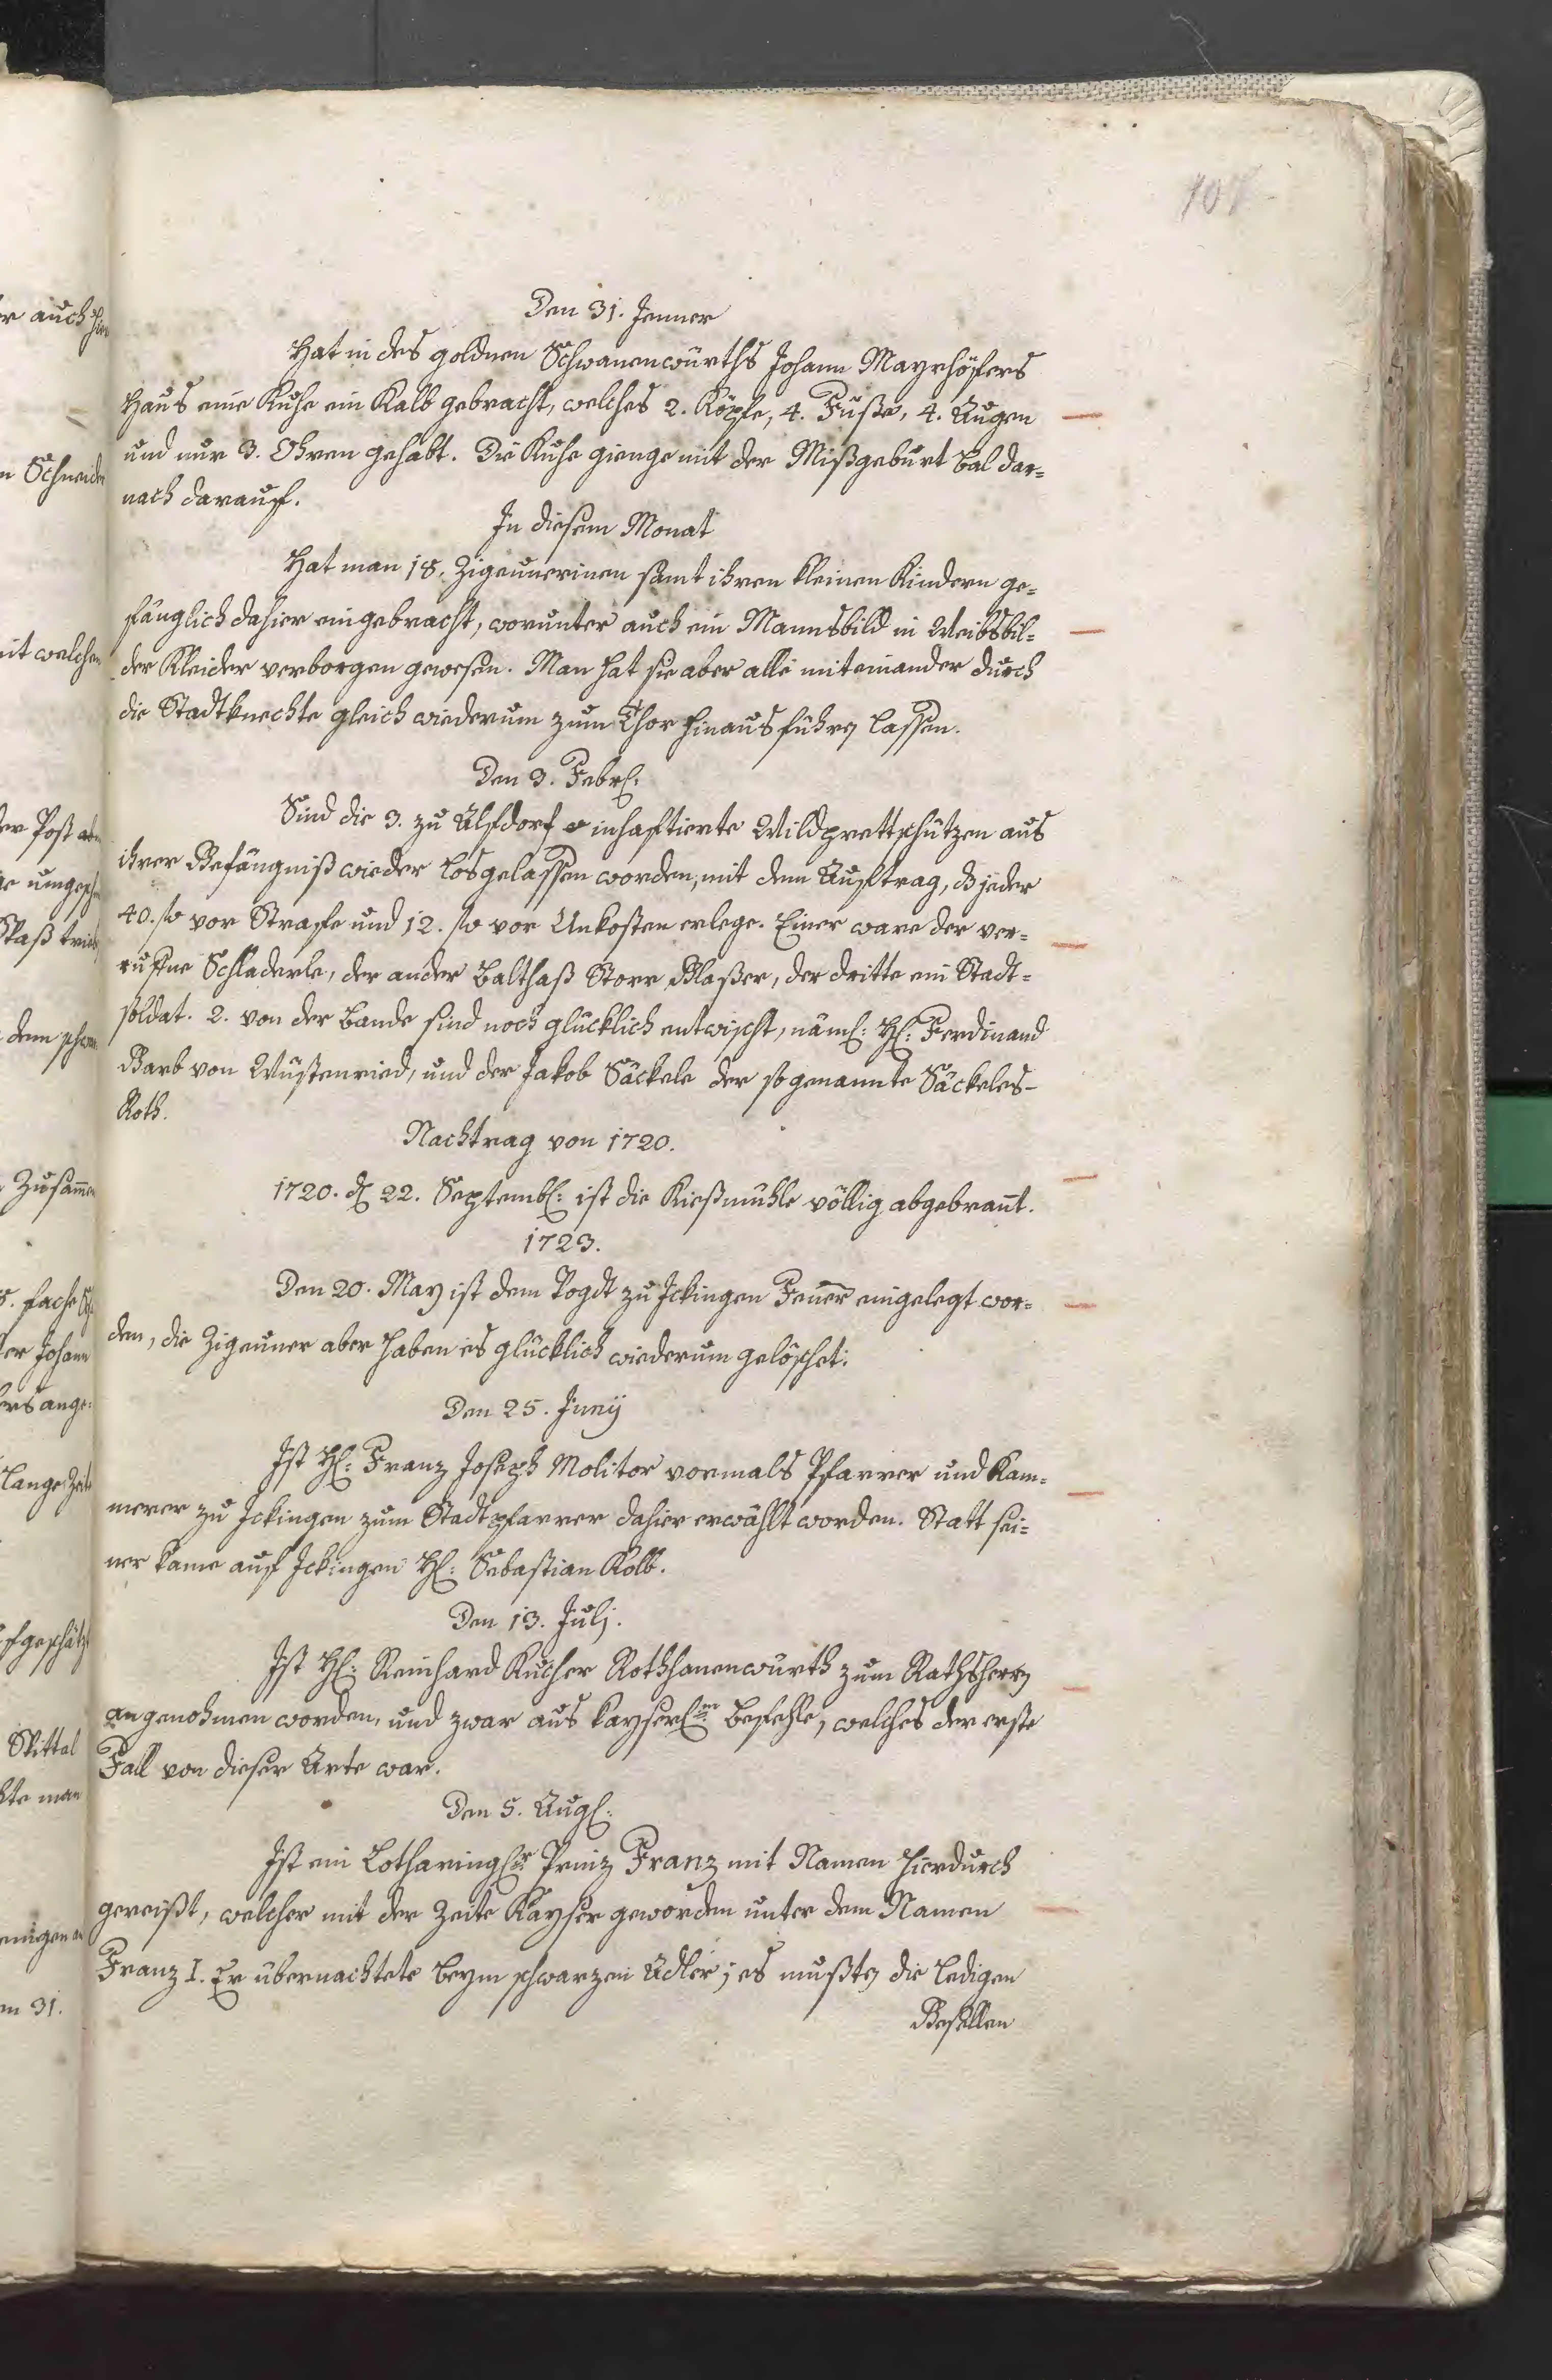 Den 31. Jenner
Hat in des goldnen Schwanenwürths Johann Mayrhöfers
Haus eine Kuhe ein Kalb gebracht, welches 2. Köpfe, 4. Füße, 4. Augen
und nur 3. Ohren gehabt. Die Kuhe gienge mit der Mißgeburt bal dar=
nach darauf.
In diesem Monat
Hat man 18. Zigeunerinen samt ihren kleinen Kindern ge=
fänglich dahier eingebracht, worunter auch ein Mannsbild in Weibsbil=
der Kleider verborgen gewesen. Man hat sie aber alle miteinander durch
die Stadtknechte gleich wiederum zum Thor hinausführen lassen.
Den 3. Febr:
Sind die 3. zu Alfdorf inhaftierte Wildprettschützen aus
ihrer Gefängniß wieder losgelassen worden, mit dem Auftrag, dß jeder
40. fl vor Strafe und 12. fl vor Unkosten erlege. Einer ware der ver=
rufne Schladerle, der ander Balthaß Storr Glaßer, der dritte ein Stadt=
soldat. 2. von der Bande sind noch glücklich entwischt, näml: H: Ferdinand
Barb von Wüstenried, und der Jakob Säckele der sogenannte Säckeles-
Roth.
Nachtrag von 1720.
1720. d 22. Septemb: ist die Kießmühle völlig abgebrañt.
1723.
Den 20. May ist dem Vogdt zu Ickingen Feuer eingelegt wor=
den, die Zigeuner aber haben es glücklich wiederum gelöschet.
Den 25. Junij
Ist H: Franz Joseph Molitor vormals Pfarrer und Kam=
merer zu Ickingen zum Stadtpfarrer dahier erwählt worden. Statt sei=
ner kame auf Ickingen H: Sebastian Kolb.
Den 13. Julj.
Ist H: Reinhard Kucher Rothhanenwürth zum Rathsherrn
angenohmen worden, und zwar aus kayserl:m Befehle, welches der erste
Fall von dieser Arte war.
Den 5. Aug:
Ist ein Lotharing:r Prinz Franz mit Namen hierdurch
gereißt, welcher mit der Zeite Kayser geworden unter dem Namen
Franz I. Er übernachtete beym schwarzen Adler; es mußten die ledigen
Gesellen